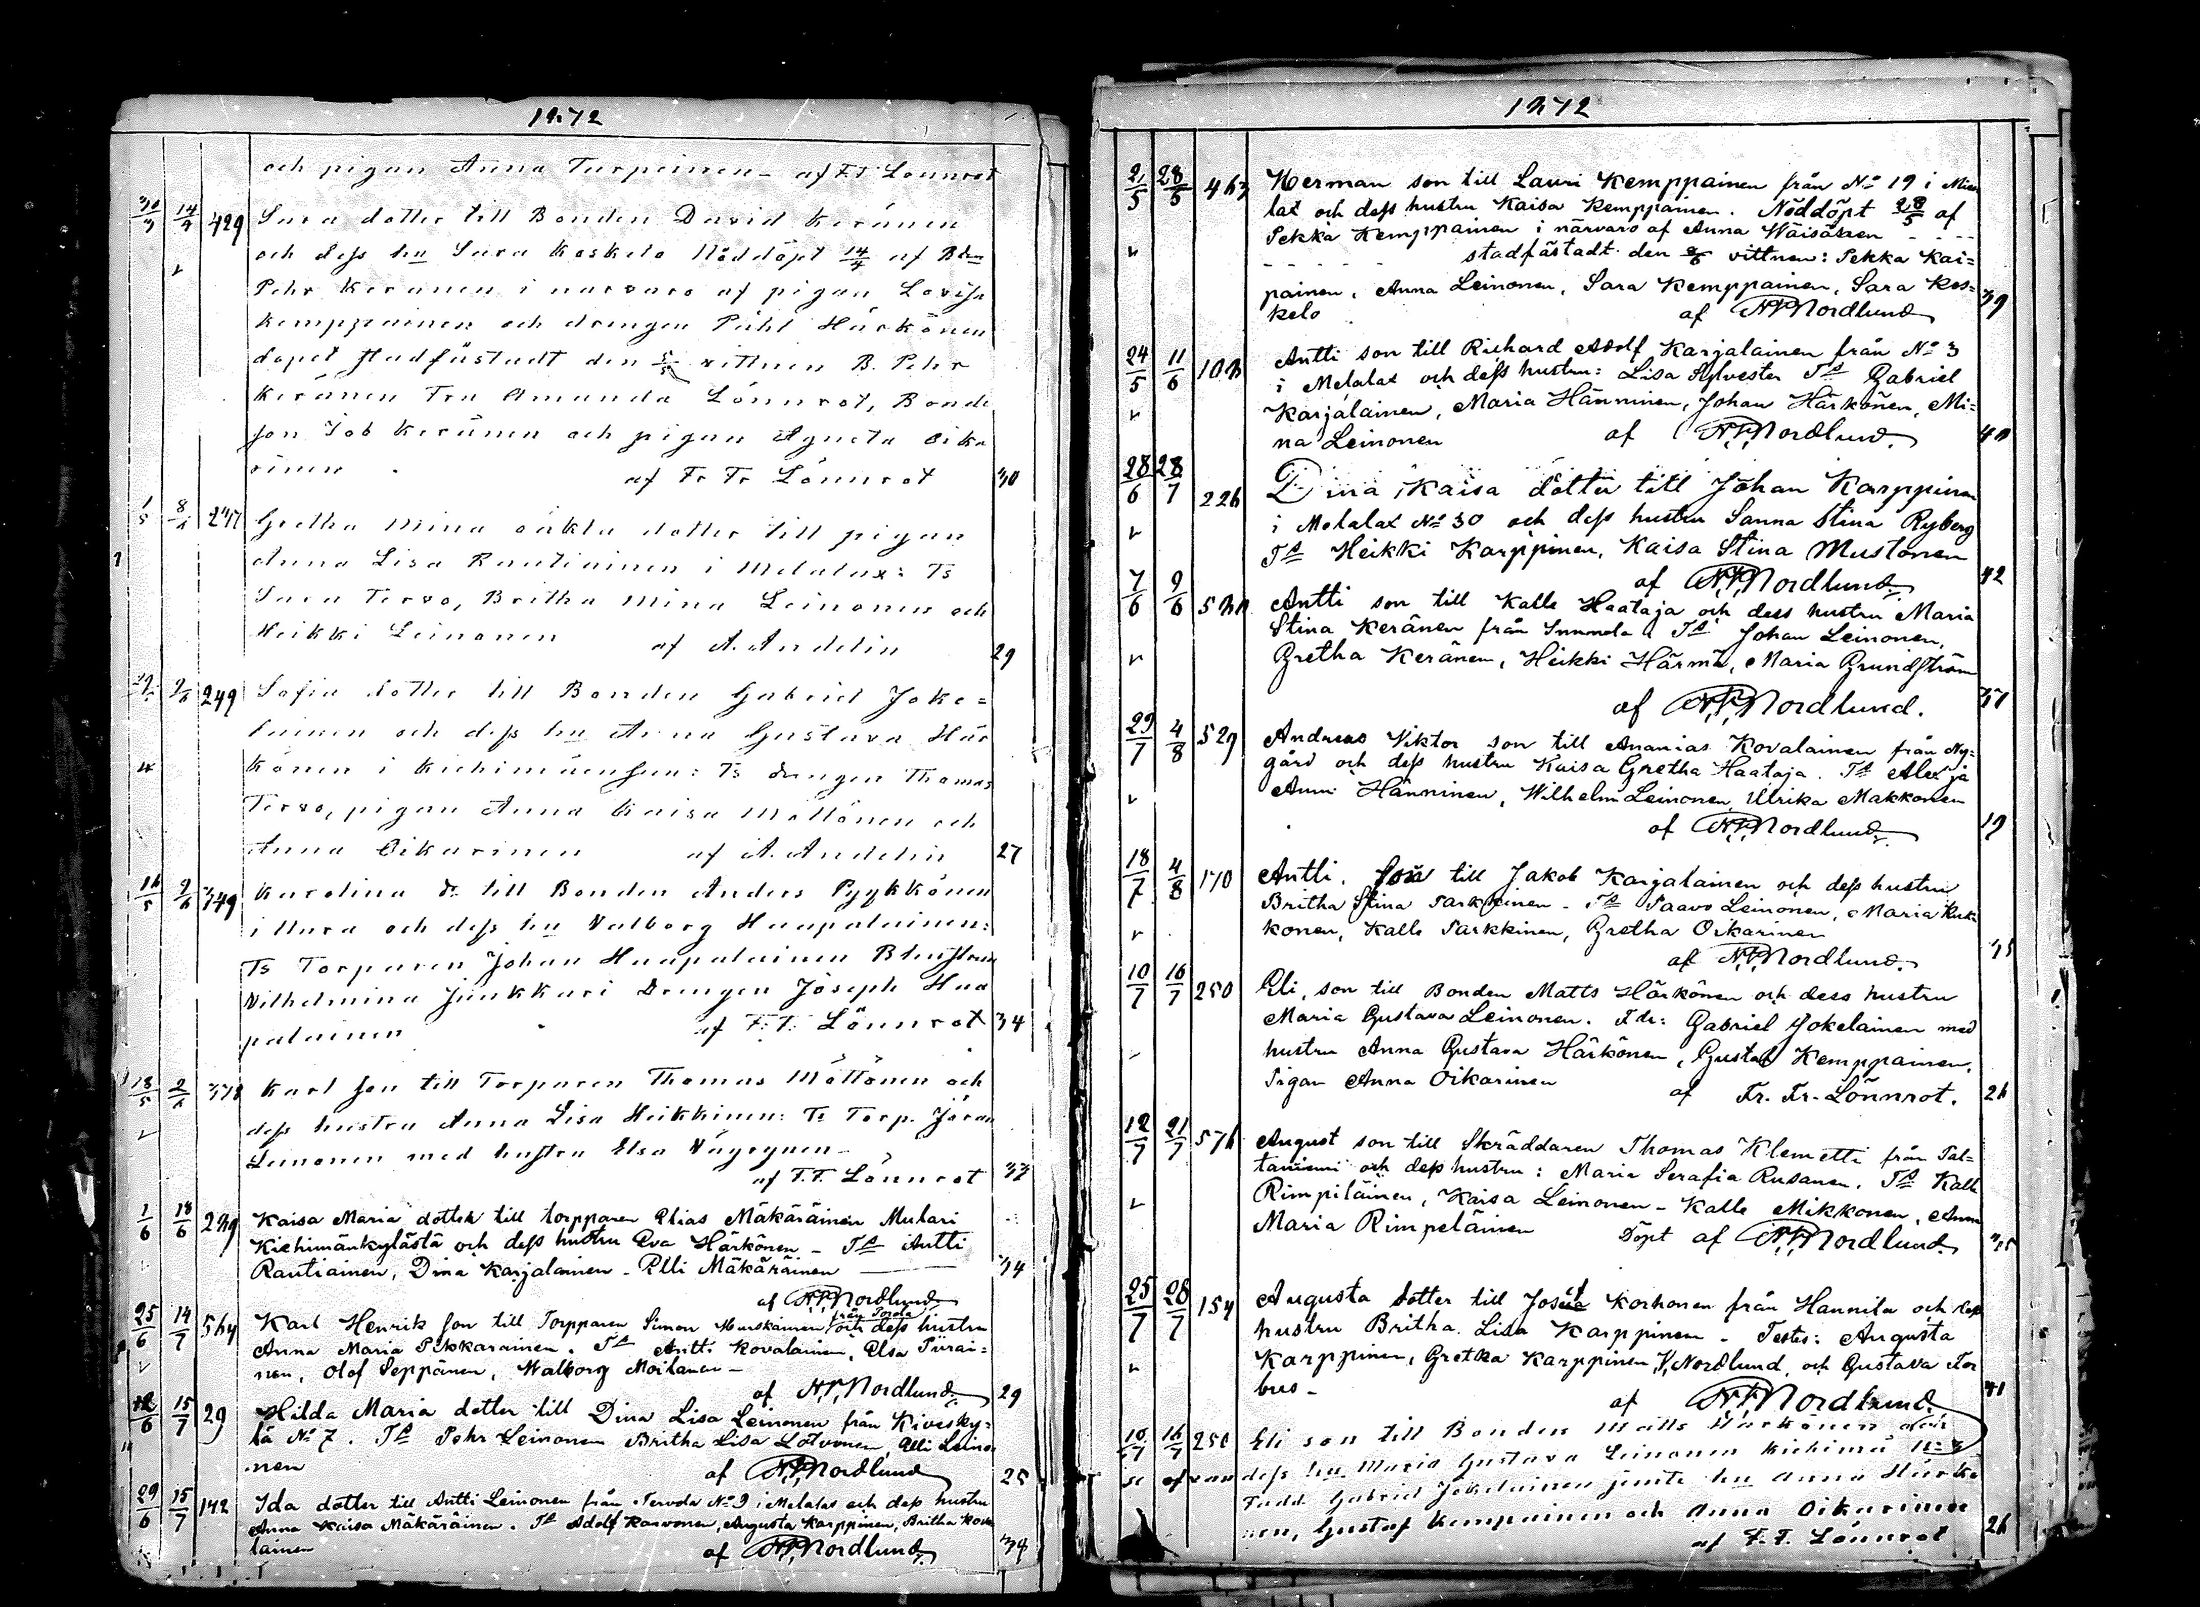 1872
och pigan Anna Turpeinen - af F.F. Lönnrot
30/3 14/4 429 Sara dotter till Bonden David Keränen
och dess hu Sara Koskelo Nöddöpt 14/4 af Bdn
Pehr Keränen i närvaro af pigan Lovisa
Kemppainen och drengen Påhl Härkönen
dopet stadfästadt den vittnen B. Pehr
Keränen Fru Amanda Lönnrot, Bonde
son Job Keränen och pigan Agneta Oika
rinen af Fr. Fr. Lönnrot 30
Gretha Mina oäkta dotter till pigan
Anna Lisa Rautiainen i Melalax: Ts
Sara Tervo, Britha Mina Leinonen och
Heikki Leinonen af A. Andelin 29
249 Sofia dotter till Bonden Gabriel Joke=
lainen och dess hu Anna Gustava Här
könen i Kiehimäensuu: Ts drengen Thomas
Tervo, pigan Anna Kaisa Möttönen och
Anna Oikarinen af A. Andelin 27
16/5 9/6 349 Karolina dr till Bonden Anders Pyykkönen
i Mura och dess hu Valborg Haapalainen:
Ts Torparen Johan Haapalainen
Vilhelmina Junkkari Drengen Joseph Haa
palainen af F.F. Lönnrot 34
18/5 9/6 378 Karl son till Torparen Thomas Möttönen och
dess hustru Anna Lisa Heikkinen: Ts Torp. Jöran
Leinonen med hustru Elsa Väyrynen -
af F.F. Lönnrot 33
1/6 18/6 289 Kaisa Maria dotter till torpparen Elias Mäkäräinen Mulari
Kiehimänkylästä och dess hustru Eva Härkönen - Ts Antti
Rautiainen, Dina Karjalainen - Elli Mäkäräinen 34
af Nordlund
25/6 14/7 564 Karl Henrik son till Torpparen Simon Hurskainen från Torola och dess hustru
Anna Maria Pikkarainen. Ts Antti Kovalainen, Elsa Piirai=
nen, Olof Seppänen, Walborg Moilanen -
af Nordlund 29
12/6 15/7 29 Hilda Maria dotter till Dina Lisa Leinonen från Kivesky=
lä No 7. Ts Pehr Leinonen Britha Lisa Lotvonen, Elli Leino
nen af Nordlund 25
29/6 15/7 142 Ida dotter till Antti Leinonen från Tervola No 9 i Melalax och dess hustru
Anna Kaisa Mäkäräinen. Ts Adolf Karvonen, Augusta Karppinen, Britha Kova
lainen af Nordlund 34
1872
21/5 28/5 463 Herman son till Lauri Kemppainen från No 19 i Mie
lax och dess hustru Kaisa Kemppainen. Nöddöpt 28/5 af
Pekka Kemppainen i närvaro af Anna Wäisänen - - -
- - - - - stadfästadt den vittnen: Pekka Kai=
painen, Anna Leinonen, Sara Kemppainen, Sara Kos=
kelo af Nordlund 39
24/5 11/6 108 Antti son till Richard Adolf Karjalainen från No 3
i Melalax och dess hustru: Lisa Sylvester Ts Gabriel
Karjalainen, Maria Hänninen, Johan Härkönen, Mi=
na Leinonen af Nordlund. 40
28/6 28/7 226 Dina Kaisa dotter till Johan Karppinen
i Melalax No 30 och dess hustru Sanna Stina Ryberg
Ts Heikki Karppinen, Kaisa Stina Mustonen
af Nordlund. 42
7/6 9/6 580 Antti son till Kalle Haataja och dess hustru Maria
Stina Keränen från Ts Johan Leinonen,
Gretha Keränen, Heikki Härmä, Maria Grundström
af Nordlund. 37
29/7 4/8 529 Andreas Viktor son till Ananias Kovalainen från Ny=
gård och dess hustru Kaisa Gretha Haataja. Ts Alex ja
Anni Hänninen, Wilhelm Leinonen, Ulrika Makkonen
af Nordlund. 19
18/7 4/8 170 Antti. Son till Jakob Karjalainen och dess hustru
Britha Stina Parkkinen - Ts Paavo Leinonen, Maria Kuk
konen, Kalle Parkkinen, Gretha Oikarinen
af Nordlund.
10/7 16/7 250 Eli, son till Bonden Matts Härkönen och dess hustru
Maria Gustava Leinonen. Fdr: Gabriel Jokelainen med
hustru Anna Gustava Härkönen, Gustaf Kemppainen,
Pigan Anna Oikarinen af Fr. Fr. Lönnrot. 26
12/7 21/7 576 August son till Skräddaren Thomas Klemetti från Pal=
taniemi och dess hustru: Maria Serafia Rusanen. Ts Kalle
Rimpiläinen, Kaisa Leinonen - Kalle Mikkonen, Anna
Maria Rimpeläinen Döpt af Nordlund.
25/7 28/7 154 Augusta dotter till Josef Korhonen från Hannila och dess
hustru Britha Lisa Karppinen - Testes: Augusta
Karppinen, Gretka Karppinen, V. Nordlund och Gustava For
bus - af Nordlund 41
10/7 16/7 250 Eli son till Bonden Matts Härkönen och
se ofvan dess hu Maria Gustava Leinonen Kiehimä
Fadd. Gabriel Jokelainen jemte hu Anna Härkö
nen, Gustaf Kempainen och Anna Oikarinen
af F.F. Lönnrot 26